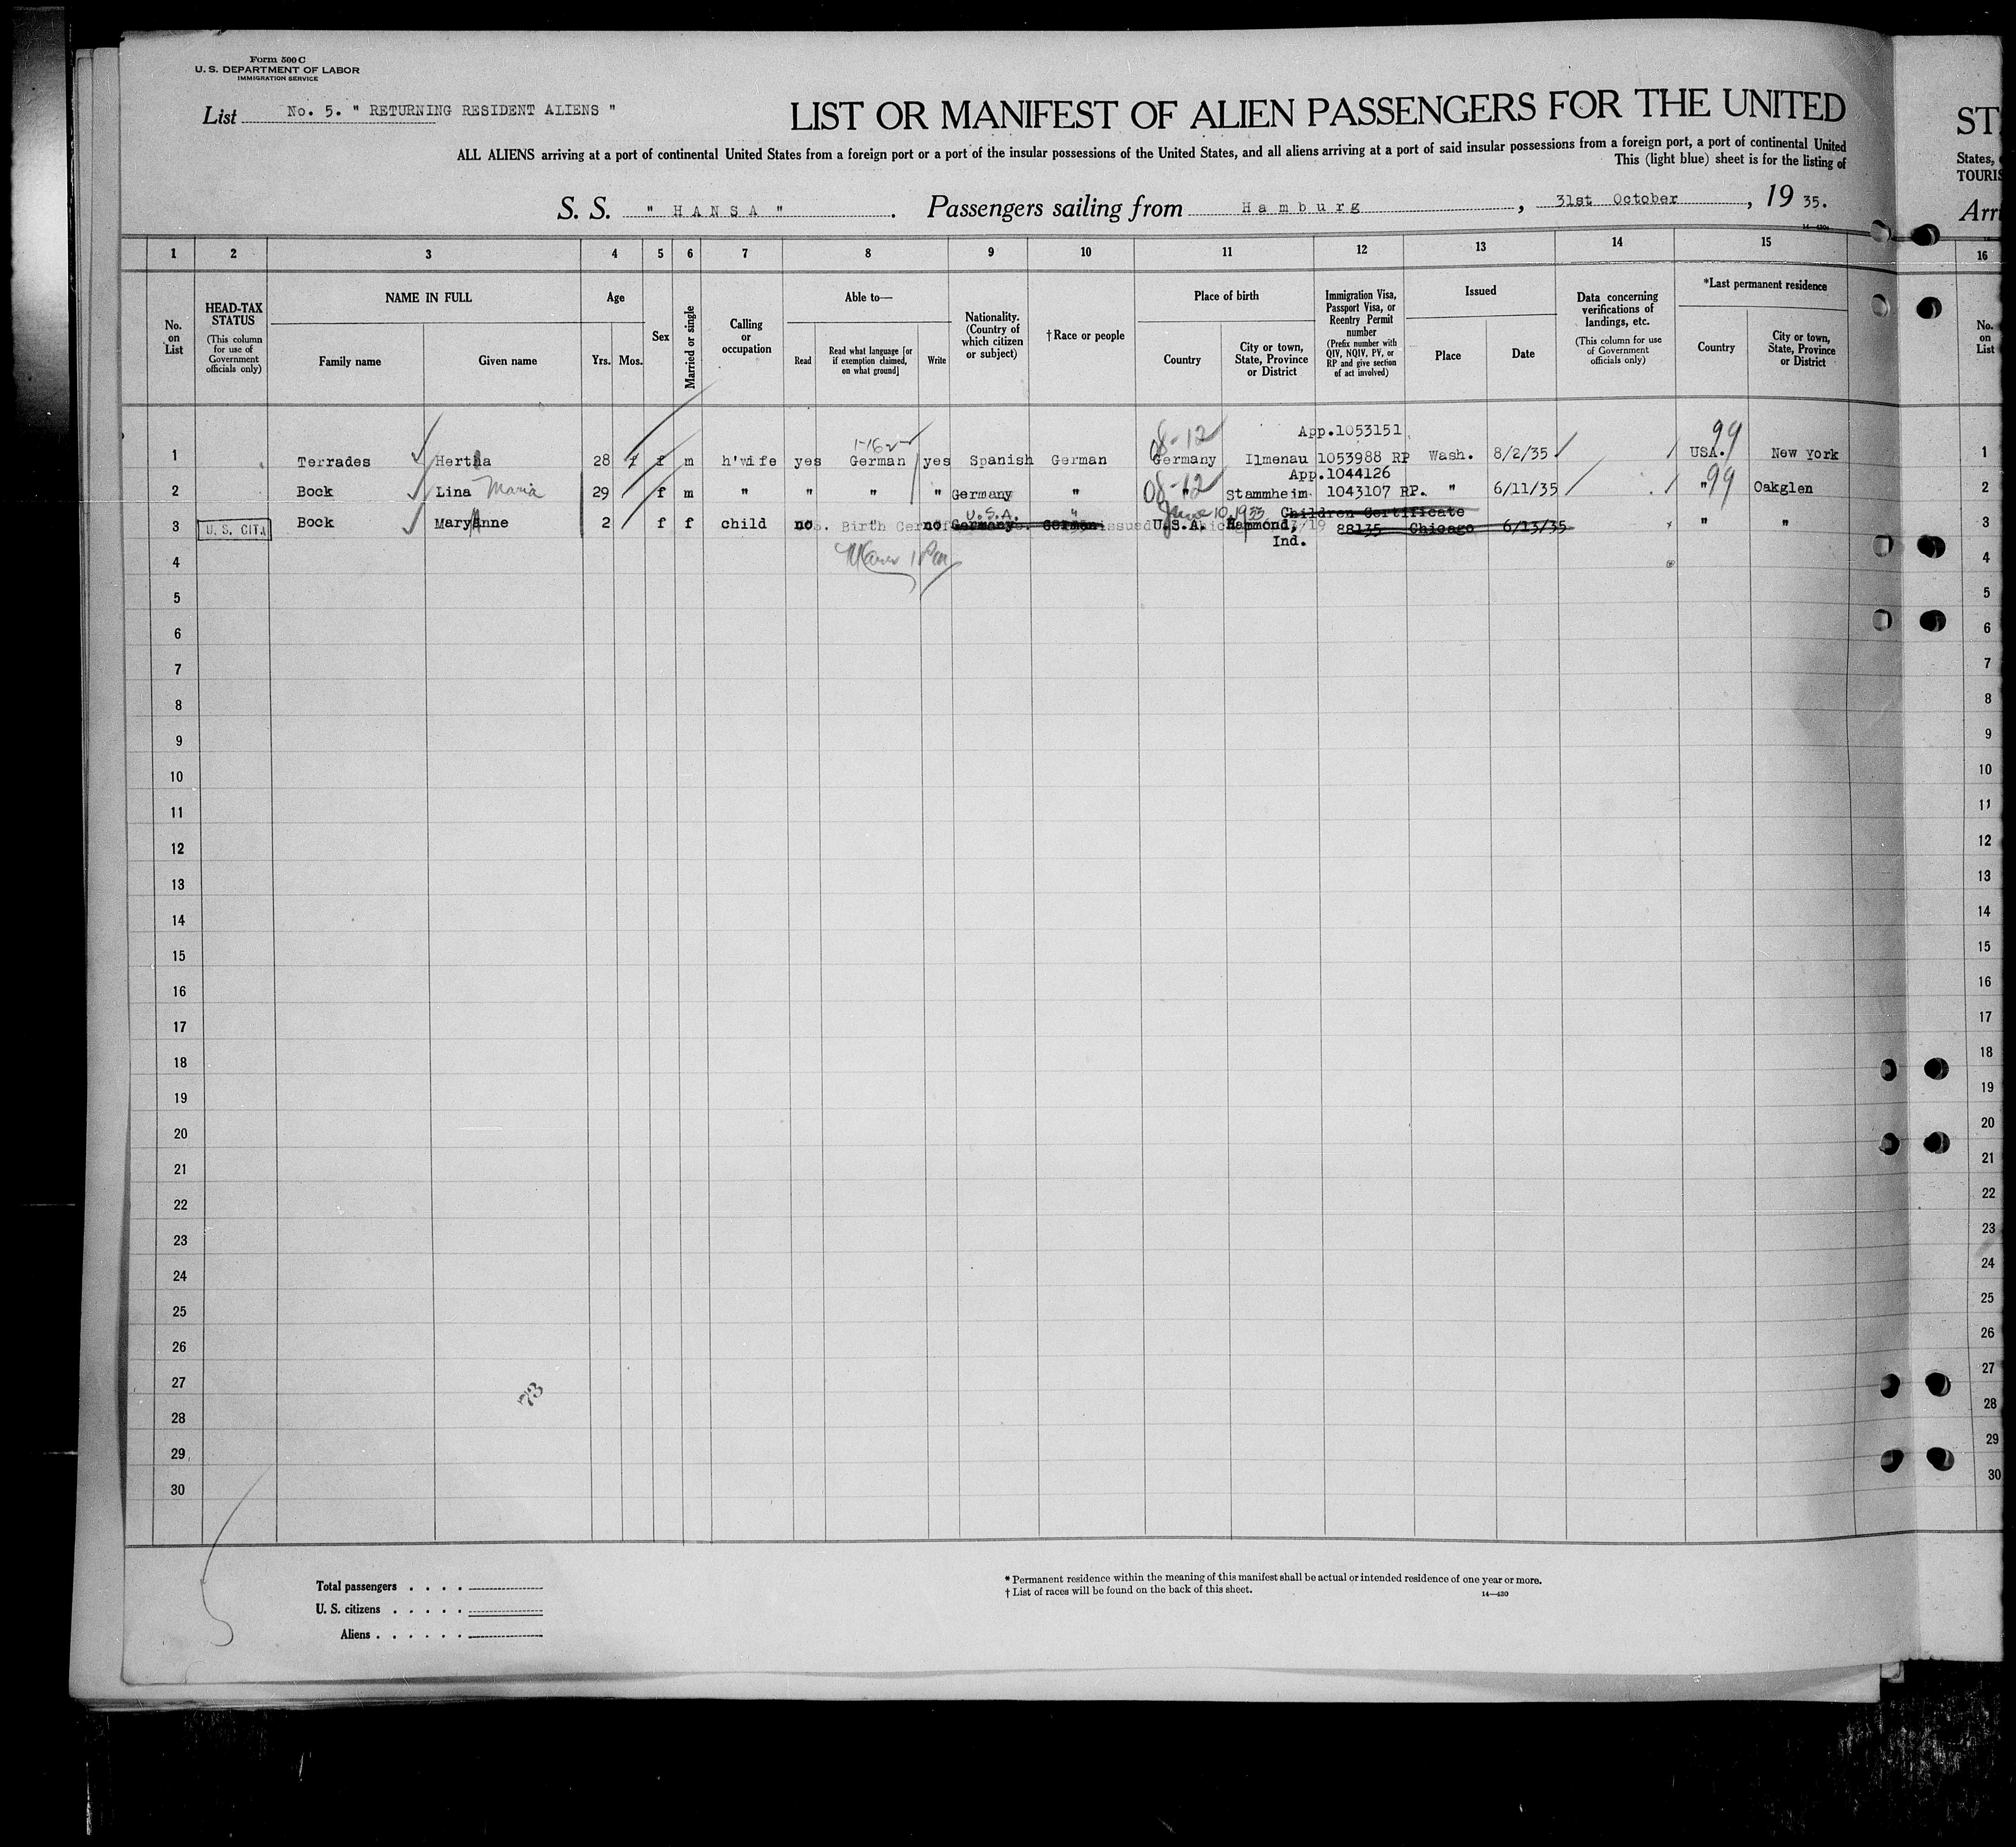 Form 500 C
U. S. DEPARTMENT OF LABOR
IMMIGRATION SERVICE
List No. 5. " RETURNING RESIDENT ALIENS "
LIST OR MANIFEST OF ALIEN PASSENGERS FOR THE UNITED
ST
ALL ALIENS arriving at a port of continental United States from a foreign port or a port of the insular possessions of the United States, and all aliens arriving at a port of said insular possessions from a foreign port, a port of continental United
States,
This (light blue) sheet is for the listing of
TOURIS
S. S. " HANSA ". Passengers sailing from Hamburg, 31st October, 19 35.
Arri
1 2 3 4 5 6 7 8 9 10 11 12 13 14 15 16
No. on List
HEAD-TAX STATUS
(This column for use of Government officials only)
NAME IN FULL
Family name Given name
Age
Yrs. Mos.
Sex
Married or single
Calling or occupation
Able to—
Read
Read what language [or if exemption claimed, on what ground]
Write
Nationality. (Country of which citizen or subject)
†Race or people
Place of birth
Country
City or town, State, Province or District
Immigration Visa, Passport Visa, or Reentry Permit number
(Prefix number with QIV, NQIV, PV, or RP and give section of act involved)
Issued
Place Date
Data concerning verifications of landings, etc.
(This column for use of Government officials only)
*Last permanent residence
Country
City or town, State, Province or District
No. on List
08-12 App.1053151 99
1 Terrades Hertha 28 f m h'wife yes German yes Spanish German Germany Ilmenau 1053988 RP Wash. 8/2/35 USA. New York 1
App.1044126
2 Bock Lina Maria 29 f m " " " " Germany " 08-12 " Stammheim 1043107 RP. " 6/11/35 " 99 Oakglen 2
U.S.A. " June 10, 1933 Children Certificate
3 U. S. CIT. Bock MaryAnne 2 f f child no " no Germany German U.S.A. Hammond, 88135 Chicago 6/13/35 " " 3
Ind.
4 4
5 5
6 6
7 7
8 8
9 9
10 10
11 11
12 12
13 13
14 14
15 15
16 16
17 17
18 18
19 19
20 20
21 21
22 22
23 23
24 24
25 25
26 26
27 27
73
28 28
29 29
30 30
Total passengers . . . .
U. S. citizens . . . . .
Aliens . . . . . .
* Permanent residence within the meaning of this manifest shall be actual or intended residence of one year or more.
† List of races will be found on the back of this sheet.
14—430